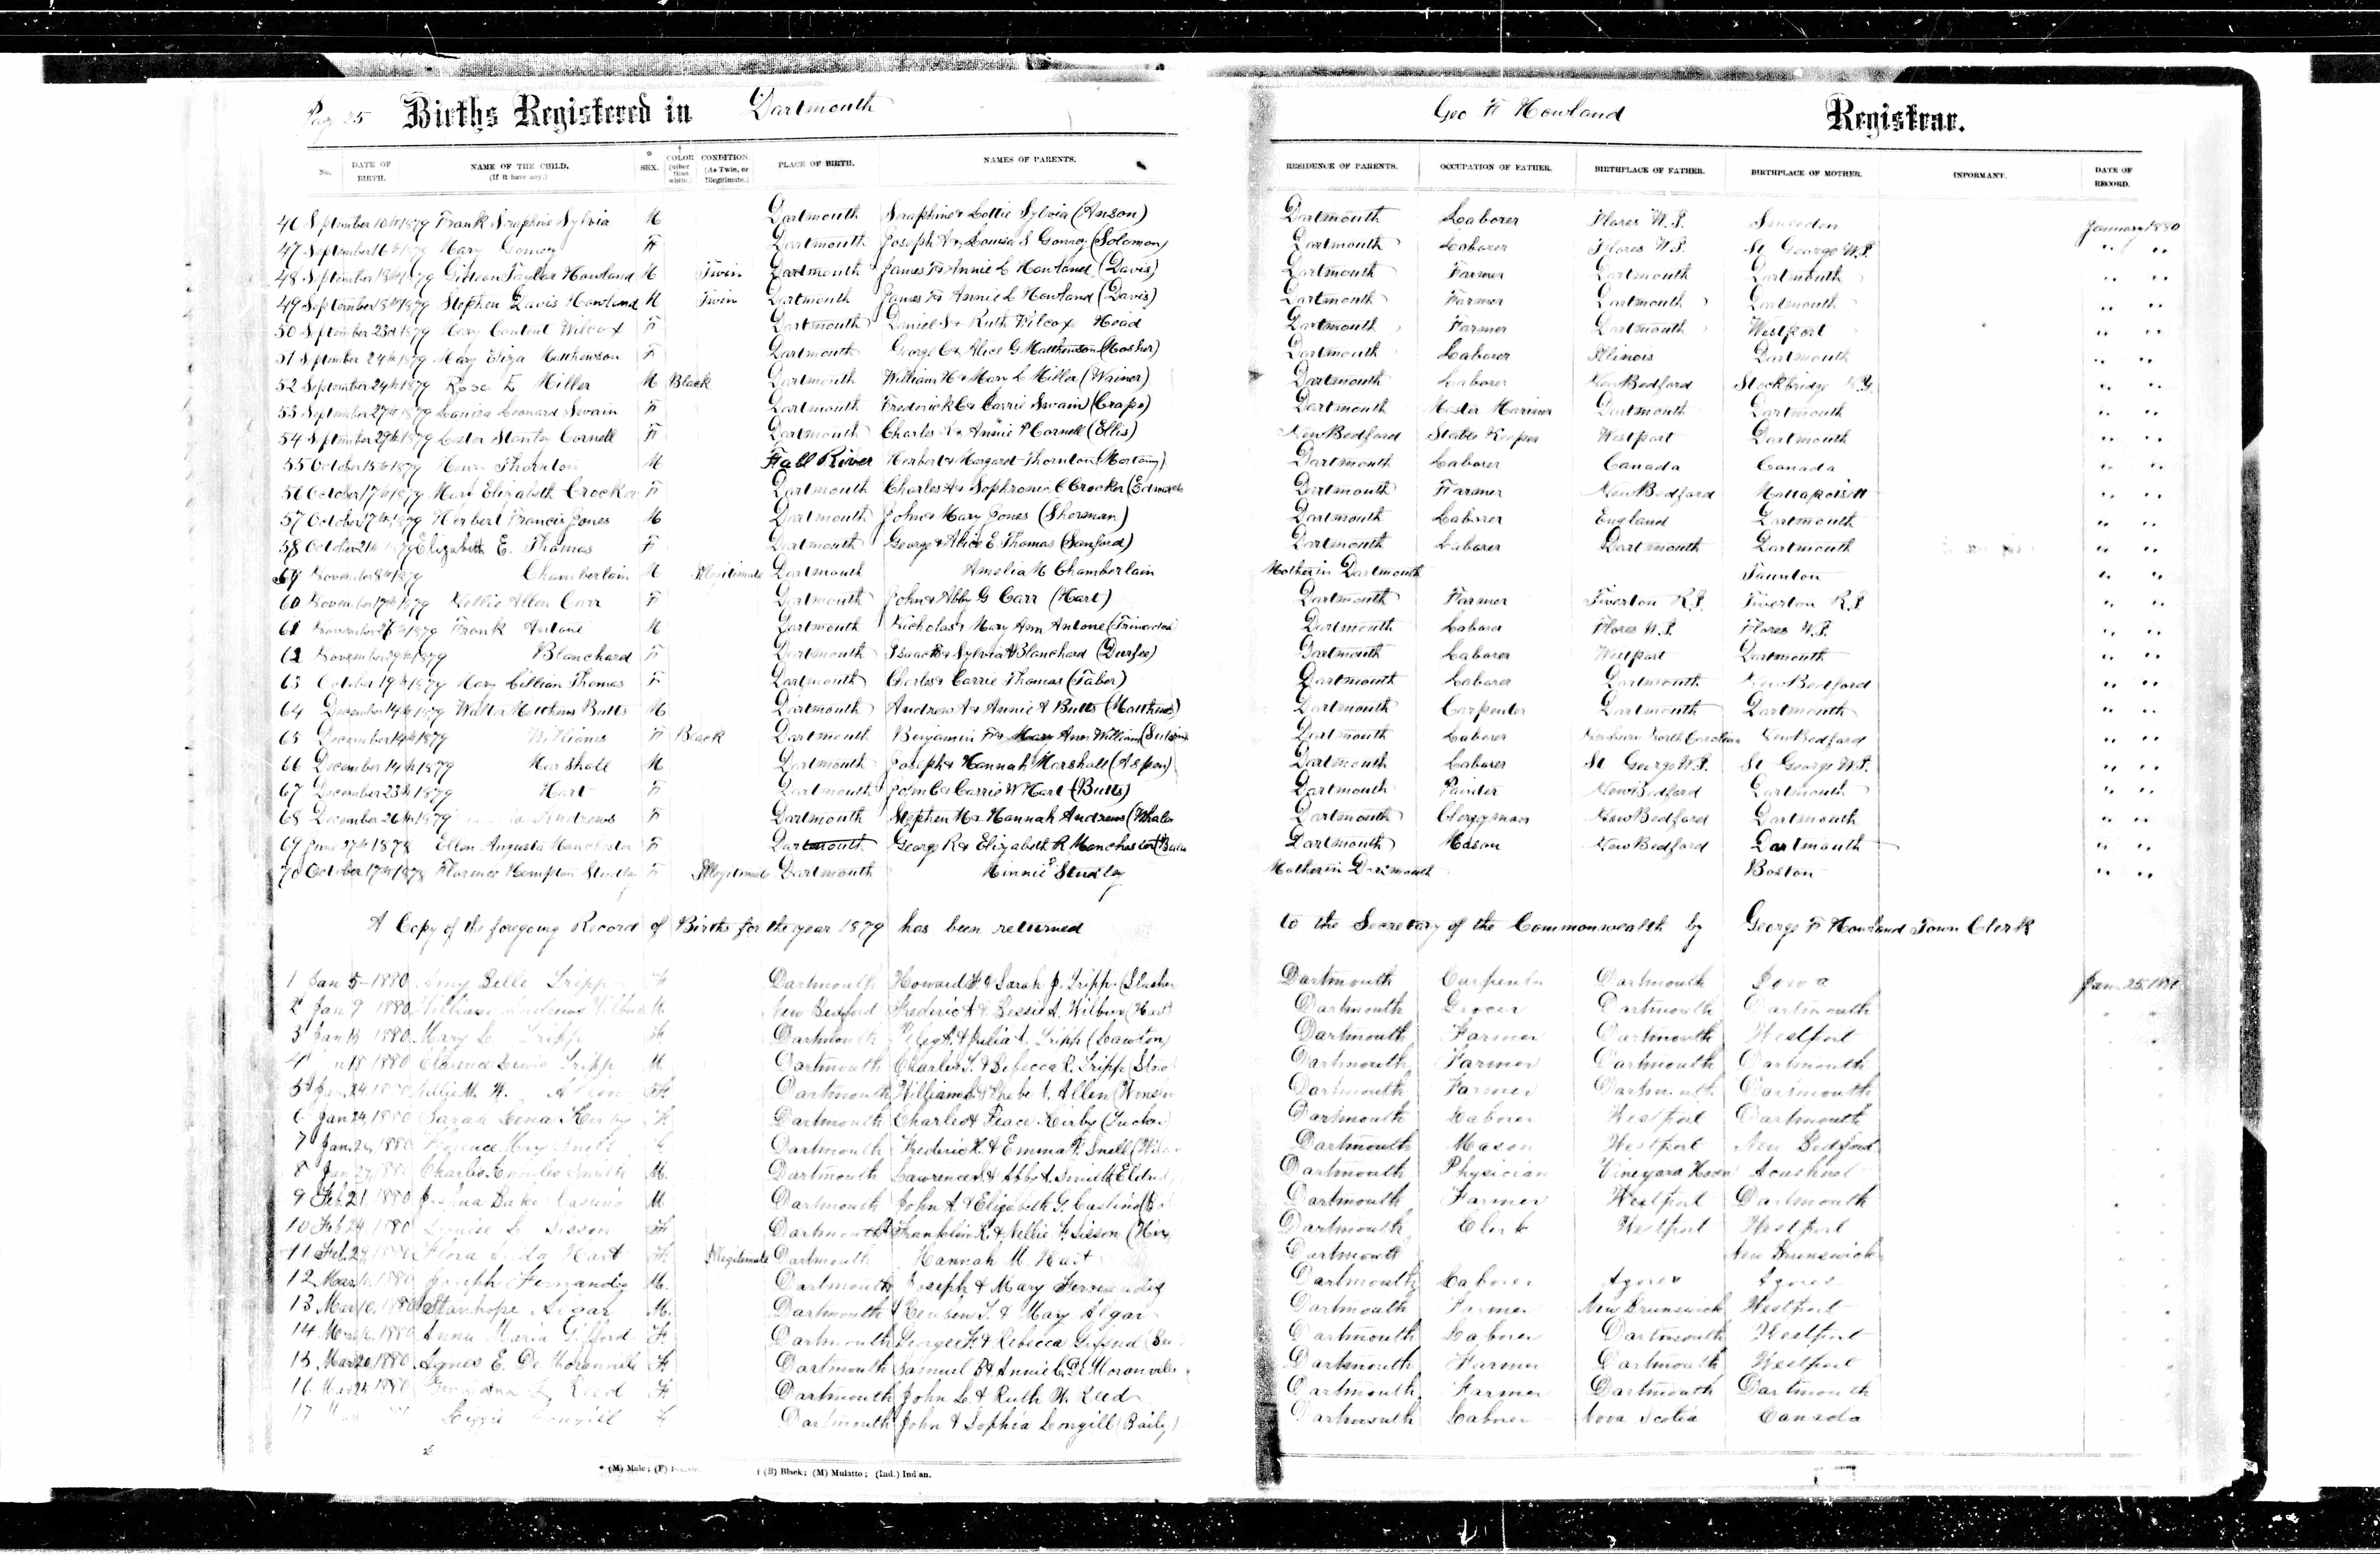 Page 25 Births Registered in Dartmouth Geo F Howland Registrar.
No. DATE OF BIRTH. NAME OF THE CHILD. (If it have any.) * SEX. † COLOR (other than white.) CONDITION (As Twin, or Illegitimate.) PLACE OF BIRTH. NAMES OF PARENTS. RESIDENCE OF PARENTS. OCCUPATION OF FATHER. BIRTHPLACE OF FATHER. BIRTHPLACE OF MOTHER. INFORMANT. DATE OF RECORD.
46 September 10th 1879 Frank Seraphine Sylvia M Dartmouth Seraphine & Lottie Sylvia (Anson) Dartmouth Laborer Flores W.I. Sweeden January 1880
47 September 16th 1879 Mary F Dartmouth Joseph & Louisa S (Solomon) Dartmouth Laborer Flores W.I. St George W.I. " "
48 September 18th 1879 Gideon Taylor Howland M Twin Dartmouth James F & Annie L Howland (Davis) Dartmouth Farmer Dartmouth Dartmouth " "
49 September 18th 1879 Stephen Davis Howland M Twin Dartmouth James F & Annie L Howland (Davis) Dartmouth Farmer Dartmouth Dartmouth " "
50 September 23rd 1879 Mary Content Wilcox F Dartmouth Daniel S & Ruth Wilcox Head Dartmouth Farmer Dartmouth Westport " "
51 September 24th 1879 Mary Eliza Matthewson F Dartmouth George C & Alice G Matthewson (Mosher) Dartmouth Laborer Illinois Dartmouth " "
52 September 24th 1879 Rose E Miller M Black Dartmouth William H & Mary L Miller (Wainer) Dartmouth Laborer New Bedford Stockbridge " "
53 September 27th 1879 Louisa Leonard Swain F Dartmouth Frederick C & Carrie Swain (Crapo) Dartmouth Master Mariner Dartmouth Dartmouth " "
54 September 29th 1879 Lester Stanley Cornell F Dartmouth Charles & Annie P Cornell (Ellis) New Bedford Stable Keeper Westport Dartmouth " "
55 October 15th 1879 Henry Thornton M Fall River Herbert & Margaret Thornton Dartmouth Laborer Canada Canada " "
56 October 17th 1879 Mary Elizabeth Crocker F Dartmouth Charles & Sophronia C Crocker Dartmouth Farmer New Bedford Mattapoisett " "
57 October 17th 1879 Herbert Francis Jones M Dartmouth John & Mary Jones (Sherman) Dartmouth Laborer England Dartmouth " "
58 October 21st 1879 Elizabeth E. Thomas F Dartmouth George & Alice E. Thomas (Sanford) Dartmouth Laborer Dartmouth Dartmouth " "
59 November 8th 1879 Chamberlain M Illegitimate Dartmouth Amelia M Chamberlain Mother in Dartmouth Taunton " "
60 November 17th 1879 Nellie Allen Carr F Dartmouth John & Abby G Carr (Hart) Dartmouth Farmer Tiverton R.I. Tiverton R.I. " "
61 November 1879 Frank Antone M Dartmouth Nicholas & Mary Ann Antone Dartmouth Laborer Flores W.I. Flores W.I. " "
62 November 29th 1879 Blanchard F Dartmouth Isaac B & Sylvia A Blanchard (Durfee) Dartmouth Laborer Westport Dartmouth " "
63 October 19th 1879 Mary Lillian Thomas F Dartmouth Charles & Carrie Thomas (Taber) Dartmouth Laborer Dartmouth New Bedford " "
64 December 14th 1879 Walter Matthews Butts M Dartmouth Andrew A & Annie A Butts (Matthews) Dartmouth Carpenter Dartmouth Dartmouth " "
65 December 14th 1879 Williams F Black Dartmouth Benjamin F & Mary Ann Williams Dartmouth Laborer North Carolina New Bedford " "
66 December 14th 1879 Marshall M Dartmouth Joseph & Hannah Marshall Dartmouth Laborer St George W.I. St George W.I. " "
67 December 23d 1879 Hart F Dartmouth John C & Carrie W Hart (Butts) Dartmouth Painter New Bedford Dartmouth " "
68 December 26th 1879 Andrews F Dartmouth Stephen M & Hannah Andrews Dartmouth Clergyman New Bedford Dartmouth " "
69 June 27th 1878 Ellen Augusta Manchester F Dartmouth George R & Elizabeth R Manchester Dartmouth Mason New Bedford Dartmouth " "
70 October 17th 1878 Florence Hampton Studley F Illegitimate Dartmouth Minnie Studley Mother in Dartmouth Boston " "
A Copy of the foregoing Record of Births for the year 1879 has been returned to the Secretary of the Commonwealth by George F Howland Town Clerk
1 Jan 5 1880 Amy Belle Tripp F Dartmouth Howard & Sarah J. Tripp Dartmouth Carpenter Dartmouth Iowa Jan. 25
2 Jan 9 1880 William Andrews Wilbur M New Bedford Frederic A & Bessie A. Wilbur Dartmouth Grocer Dartmouth Dartmouth
3 Jan 1880 Mary L Tripp F Dartmouth & Julia A. Tripp (Lawton) Dartmouth Farmer Dartmouth Westport
4 18 1880 Clarence Lewis Tripp M Dartmouth Charles S. & Rebecca R. Tripp Dartmouth Farmer Dartmouth Dartmouth
5 Jan 24 Nellie M. Allen F Dartmouth William & Phebe Allen Dartmouth Farmer Dartmouth Dartmouth
6 Jan 24, 1880 Sarah Lena Kirby F Dartmouth Charles & Peace Kirby Dartmouth Laborer Westport Dartmouth
7 Jan. 1880 May Snell Dartmouth Frederic & Emma Snell Dartmouth Mason Westport New Bedford
8 Jan 27 Charles Smith M. Dartmouth Lawrence & Abby Smith Dartmouth Physician Vineyard Haven Acushnet
9 Feb. 21 1880 M Dartmouth John A & Elizabeth G. Dartmouth Farmer Westport Dartmouth
10 Feb 24 1880 Louise L Sisson F Dartmouth Franklin & Nellie Sisson Dartmouth Clerk Westport Westport
11 Feb. 29 Flora Hart F. Illegitimate Dartmouth Hannah M. Hart Dartmouth New Brunswick
12 Mar. 1880 Joseph Fernandes M. Dartmouth Joseph & Mary Fernandes Dartmouth Laborer Azores Azores
13 Mar 10, 1880 Stanhope Algar M. Dartmouth Reuben & Mary Algar Dartmouth Farmer New Brunswick Westport
14 Mar. 1880 Anna Maria Gifford F Dartmouth George & Rebecca Gifford Dartmouth Laborer Dartmouth Westport
15 Mar 20 1880 Agnes E. De Moranville F Dartmouth Samuel & Annie De Moranville Dartmouth Farmer Dartmouth Westport
16 Mar 1880 Reed F Dartmouth John L. & Ruth Reed Dartmouth Farmer Dartmouth Dartmouth
17 Lizzie Longill F Dartmouth John & Sophia Longill (Baily) Dartmouth Laborer Nova Scotia Canada
* (M) Male; (F) Female. † (B) Black; (M) Mulatto; (Ind.) Indian.